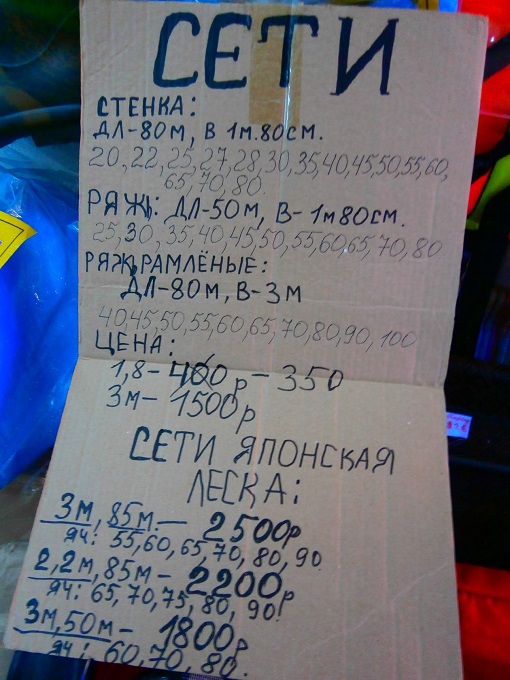 СЕТИ
СТЕНКА:
ДЛ-80м, В 1м.80см.
20, 22, 25, 27, 28, 30, 35, 40, 45, 50, 55, 60,
65, 70, 80.
РЯЖ: ДЛ-50м, В-1м80см.
25, 30, 35, 40, 45, 50, 55, 60, 65, 70, 80
РЯЖ, РАМЛЁНЫЕ:
ДЛ-80м, В-3м
40, 45, 50, 55, 60, 65, 70, 80, 90, 100
ЦЕНА:
1,8-400р-350
3м-1500р
СЕТИ ЯПОНСКАЯ
ЛЕСКА:
3м, 85м.-2500р
яч: 55, 60, 65, 70, 80, 90.
2,2м, 85м-2200р
яч: 65, 70, 75, 80, 90.
3м, 50м-1800р
яч: 60, 70, 80.